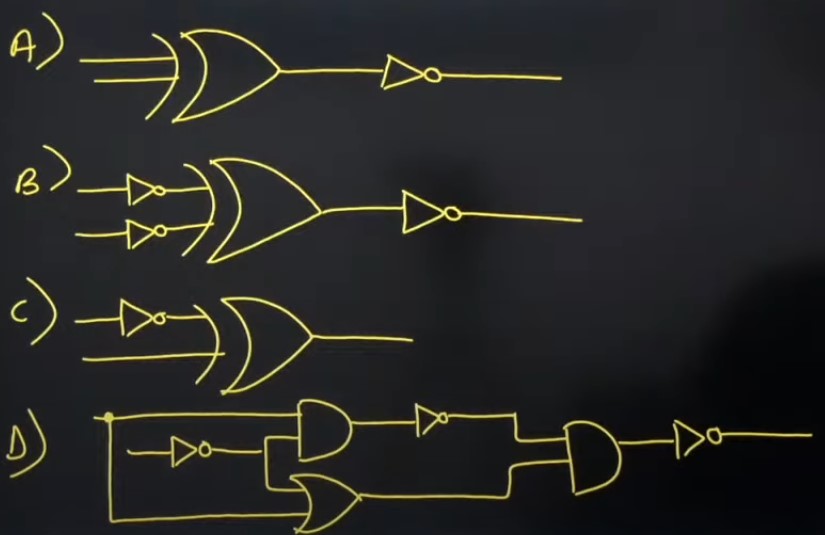 A)
B)
C)
D)